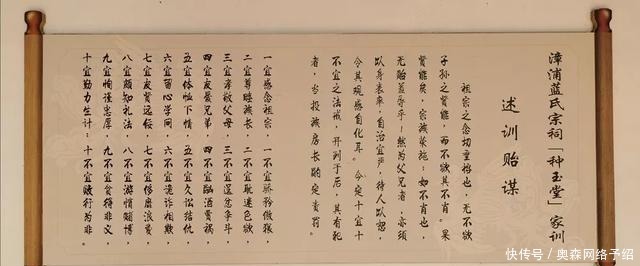 漳浦蓝氏宗祠「种玉堂」家训
述训贻谋
祖宗之念切垂裕也，无不欲
子孙之贤能，而不欲其不肖。果
贤能矣，宗族荣施；如不肖也，
无贻羞辱乎！然为父兄者，亦须
以身表率，自治宜严，待人以恕，
令其观感自化耳。今定十宜十
不宜之法戒，开列于后，其有犯
者，当投族房长酌定责罚。
一宜感念祖宗，一不宜骄矜傲狠，
二宜尊睦族长，二不宜耽迷色欲，
三宜孝敬父母，三不宜逞忿争斗，
四宜友爱兄弟，四不宜酗酒贾祸，
五宜体恤下情，五不宜久讼结仇，
六宜留心学问，六不宜诡诈相欺，
七宜友贤远佞，七不宜侈靡浪费，
八宜颇知礼法，八不宜游惰赌博，
九宜恂谨忠厚，九不宜贪得非义，
十宜勤力生计；十不宜贱行为非。
快传号/奥森网络予绍